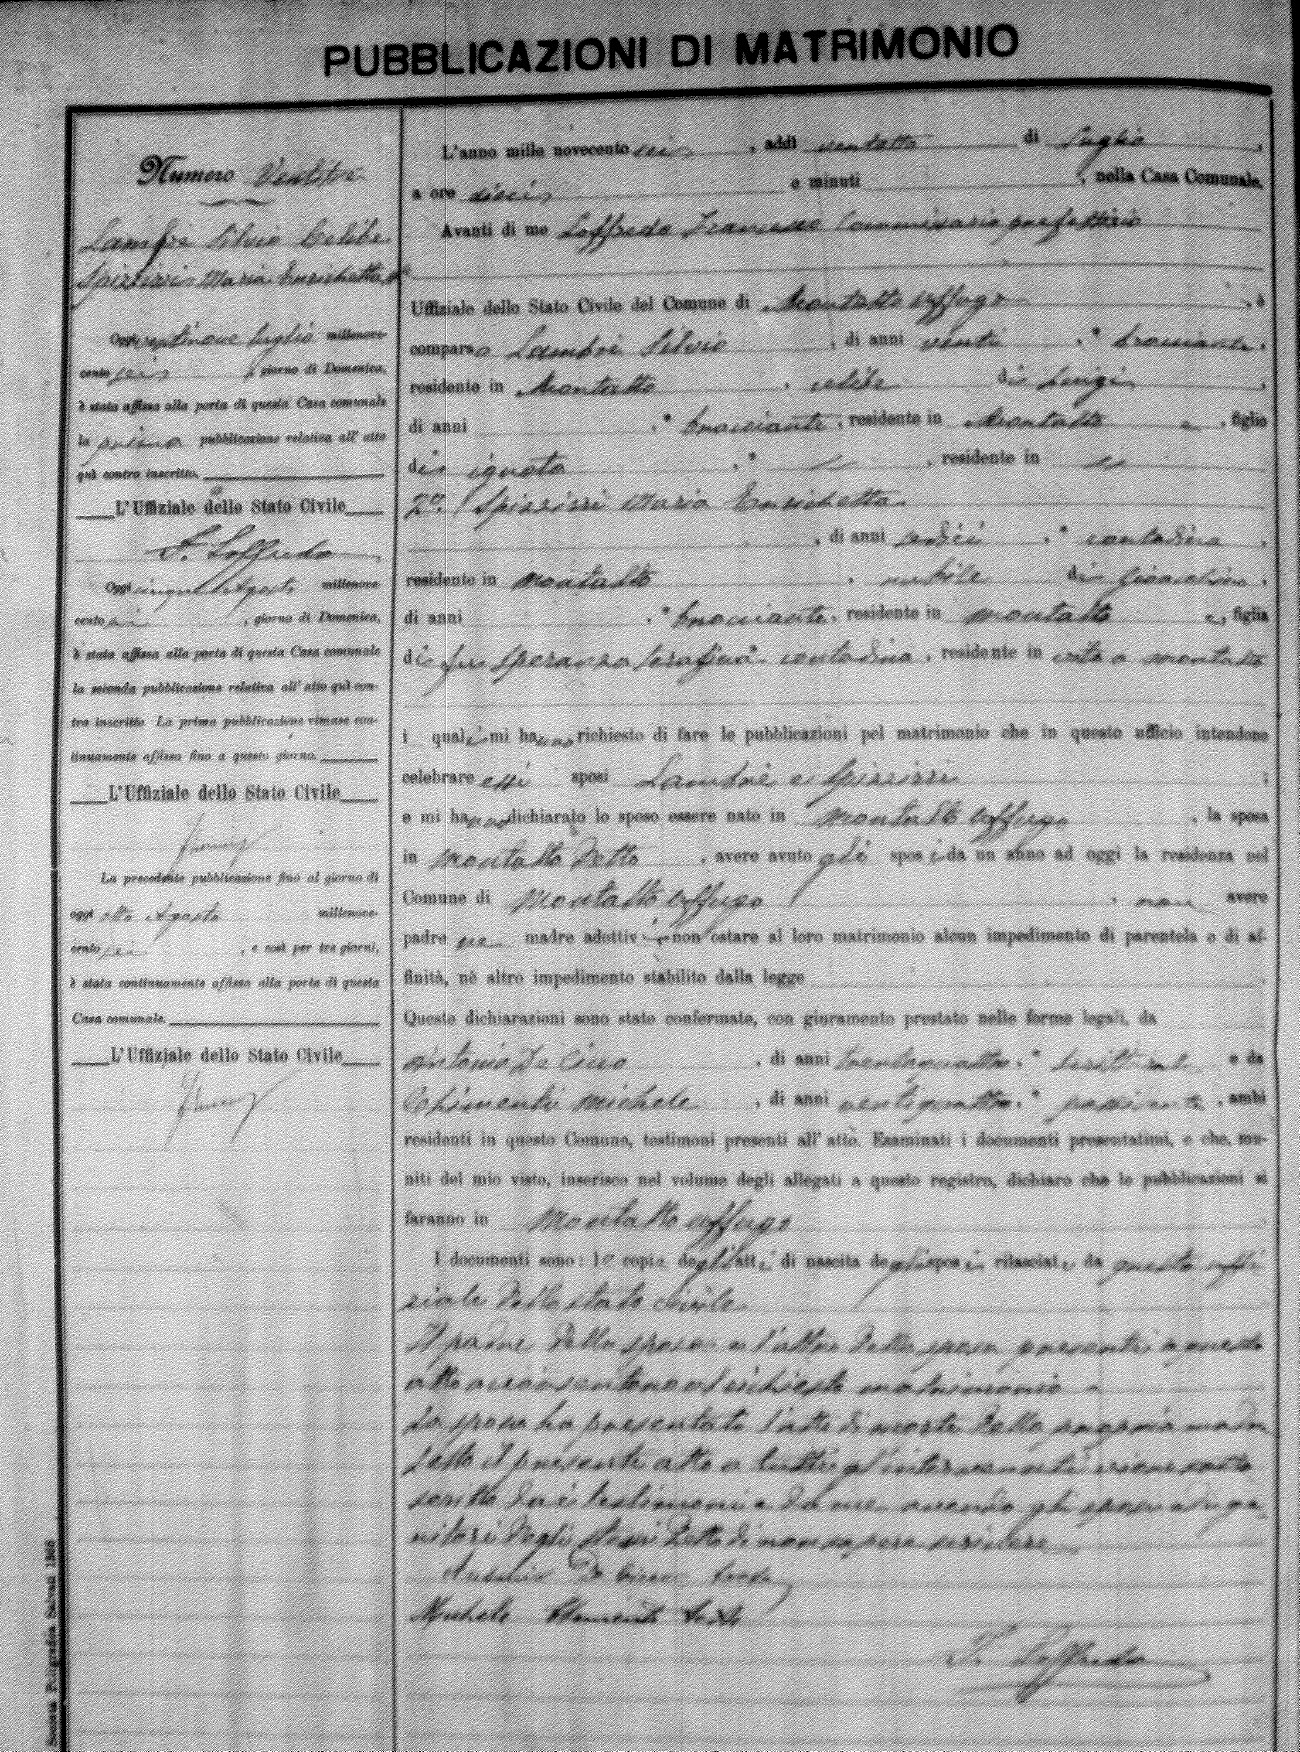 PUBBLICAZIONI DI MATRIMONIO
Numero Ventitre
Lambri Silvio Celibe
Spizzirri Maria Enrichetta
Oggi ventinove luglio millenove-
cento sei, giorno di Domenica,
è stata affissa alla porta di questa Casa comunale
la prima pubblicazione relativa all'atto
quì contro inscritto.
L'Uffiziale dello Stato Civile
F. Loffredo
Oggi cinque Agosto millenove-
cento sei, giorno di Domenica,
è stata affissa alla porta di questa Casa comunale
la seconda pubblicazione relativa all'atto quì con-
tro inscritto. La prima pubblicazione rimase con-
tinuamente affissa fino a questo giorno.
L'Uffiziale dello Stato Civile
La precedente pubblicazione fino al giorno di
oggi otto Agosto millenove-
cento sei, e così per tre giorni,
è stata continuamente affissa alla porta di questa
Casa comunale.
L'Uffiziale dello Stato Civile
L'anno mille novecento sei, addì ventotto di Luglio,
a ore dieci e minuti, nella Casa Comunale.
Avanti di me Loffredo Francesco Commissario prefettizio
Uffiziale dello Stato Civile del Comune di Montalto Uffugo, è
comparso Lambri Silvio, di anni venti, bracciante,
residente in Montalto, celibe di Luigi,
di anni, bracciante, residente in Montalto, figlio
di ignota, residente in
2º Spizzirri Maria Enrichetta
, di anni sedici, contadina,
residente in Montalto, nubile di,
di anni, bracciante, residente in Montalto, figlia
di fu Speranza Serafina contadina, residente in Montalto
i quali mi hanno richiesto di fare le pubblicazioni pel matrimonio che in questo ufficio intendono
celebrare essi sposi Lambri e Spizzirri;
e mi hanno dichiarato lo sposo essere nato in Montalto Uffugo, la sposa
in Montalto detto, avere avuto gli sposi da un anno ad oggi la residenza nel
Comune di Montalto Uffugo, non avere
padre nè madre adottivi e non ostare al loro matrimonio alcun impedimento di parentela o di af-
finità, nè altro impedimento stabilito dalla legge
Queste dichiarazioni sono state confermate, con giuramento prestato nelle forme legali, da
Antonio De Cicco, di anni trentaquattro, e da
Chimenti Michele, di anni ventiquattro, possidente, ambi
residenti in questo Comune, testimoni presenti all'atto. Esaminati i documenti presentatimi, e che, mu-
niti del mio visto, inserisco nel volume degli allegati a questo registro, dichiaro che le pubblicazioni si
faranno in Montalto Uffugo
I documenti sono: le copie degli atti di nascita degli sposi rilasciate da questo uffi-
ziale dello stato civile
Il padre dello sposo e l'altro della sposa presenti a questo
atto acconsentono al richiesto matrimonio
La sposa ha presentato l'atto di morte della propria madre
Letto il presente atto a tutti gl'intervenuti viene sotto-
scritto dai testimoni e da me avendo gli sposi ed i ge-
nitori degli stessi detto di non sapere scrivere
De Cicco teste
Michele Chimenti teste
F. Loffredo